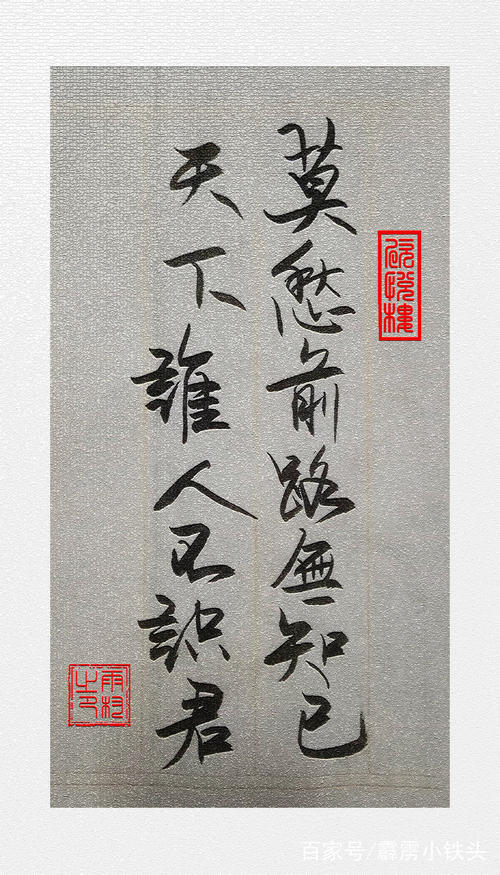 莫愁前路無知已
天下誰人不識君
雨村之印
百家号/霹雳小铁头